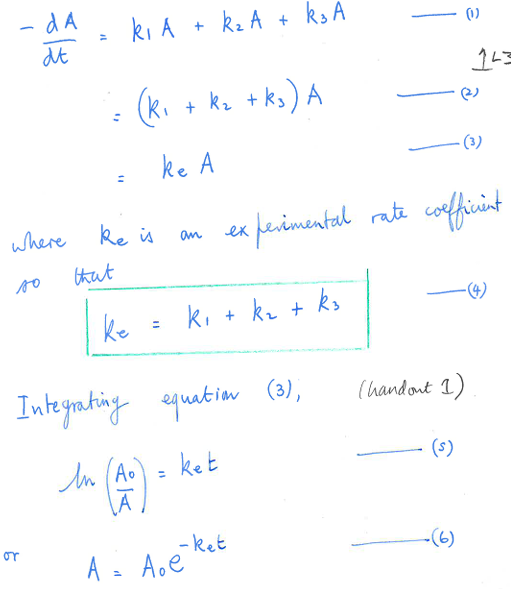 - dA/dt = k₁A + k₂A + k₃A —— (1)
1L3
= (k₁ + k₂ + k₃) A —— (2)
= ke A —— (3)
where ke is an experimental rate coefficient
so that
ke = k₁ + k₂ + k₃ —— (4)
Integrating equation (3), (handout 1)
ln (A₀/A) = ket —— (5)
or A = A₀e^-ket —— (6)